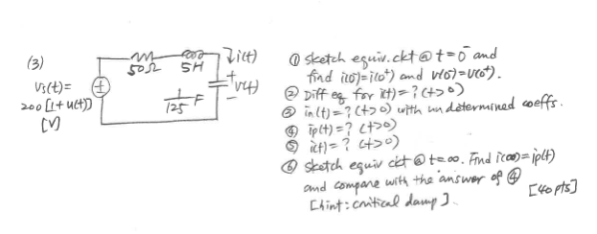 (3)
Vs(t)=
200[1+u(t)]
[V]
50Ω 5H
i(t)
+
v(t)
-
1/125 F
① Sketch equiv. ckt @ t=0⁻ and
find i(0⁻)=i(0⁺) and v(0⁻)=v(0⁺).
② Diff eq for i(t)=? (t>0)
③ in(t)=? (t>0) with undetermined coeffs.
④ ip(t)=? (t>0)
⑤ i(t)=? (t>0)
⑥ sketch equiv ckt @ t=∞. Find i(∞)=ip(t)
and compare with the answer of ④
[hint: critical damp]. [40 pts]